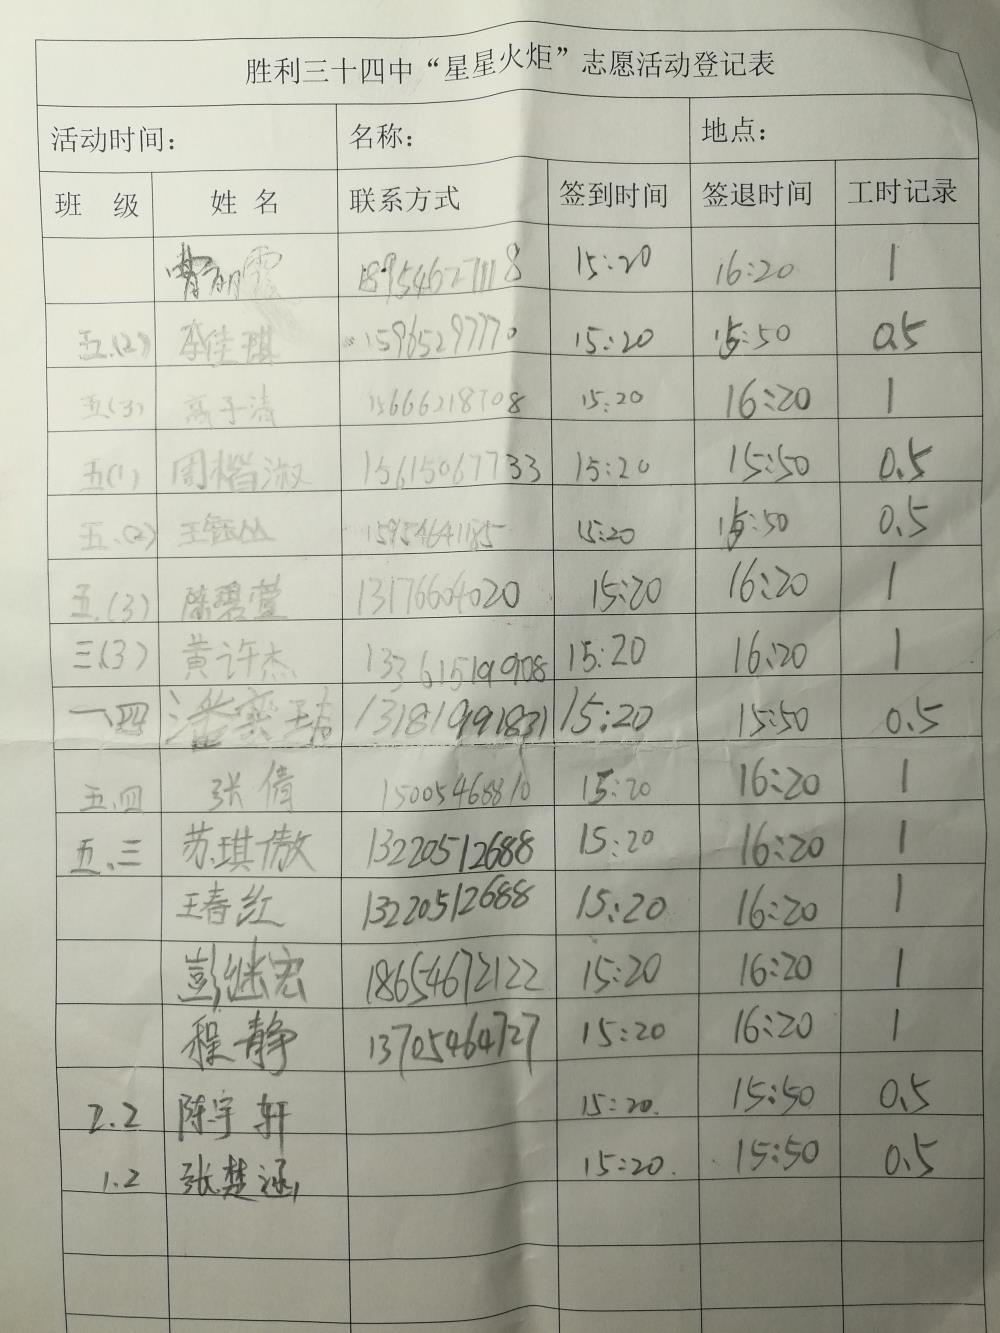 胜利三十四中“星星火炬”志愿活动登记表
活动时间： 名称： 地点：
班 级 姓 名 联系方式 签到时间 签退时间 工时记录
18954627118 15:20 16:20 1
五.(2) 李佳琪 15965297770 15:20 15:50 0.5
五.(3) 高子清 15666218708 15:20 16:20 1
五(1) 周楷淑 15615067733 15:20 15:50 0.5
五.(2) 15954641185 15:20 15:50 0.5
五.(3) 陈碧萱 13176604020 15:20 16:20 1
三.(3) 黄许杰 13361519908 15:20 16:20 1
一.四 15:20 15:50 0.5
五.四 张倩 15005468810 15:20 16:20 1
五.三 苏琪傲 13220512688 15:20 16:20 1
王春红 13220512688 15:20 16:20 1
彭继宏 18654672122 15:20 16:20 1
程静 13705464727 15:20 16:20 1
2.2 陈宇轩 15:20. 15:50 0.5
1.2 张楚涵 15:20. 15:50 0.5